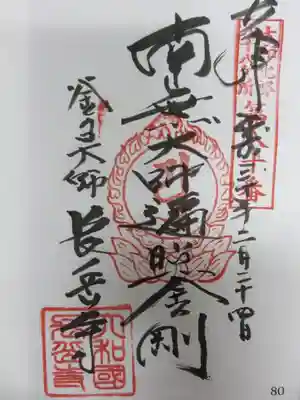 奉拝 三十年二月二十四日
南無大師遍照金剛
釜口大師 長岳寺
大和國
長岳寺
80